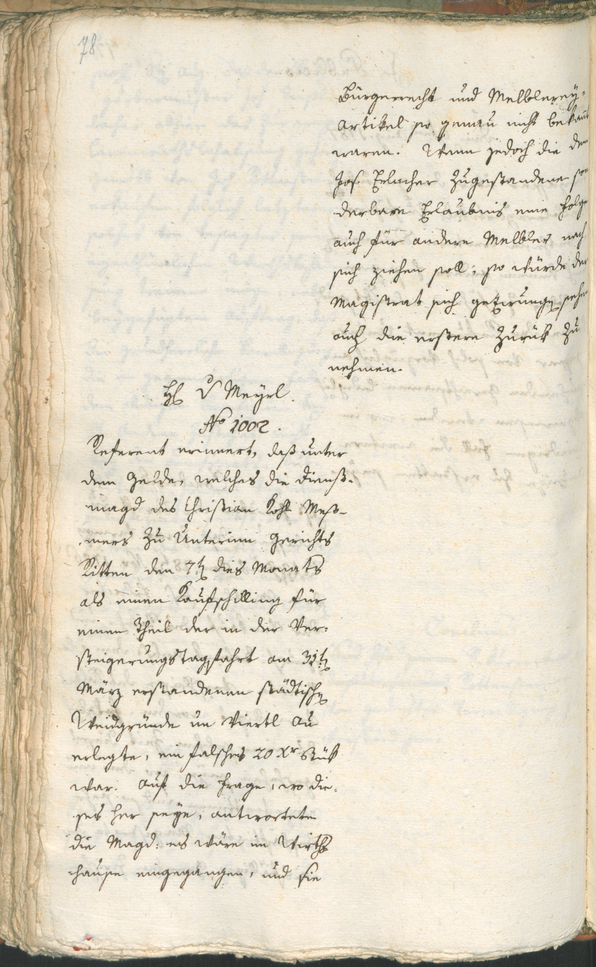 78
Bürgerrecht und Melblerey-
Artikel so genau nicht bekannt
waren. Wenn jedoch die dem
Jos. Erlacher zugestandene son
derbare Erlaubnis eine Folge
auch für andere Melbler nach
sich ziehen soll, so würde der
Magistrat sich gezwungen sehen
auch die erstere zurück zu
nehmen.
H. v Meyrl.
No 1002.
Referent erinnert, daß unter
dem Gelde, welches die Dienst-
magd des Christian Kohl Meß-
mers zu Unterinn Gerichts
Ritten den 7t dies Monats
als einen Kaufschilling für
einen Theil der in der Ver-
steigerungstagsfahrt am 31t
März erstandenen städtischen
Weidgründe im Viertl Au
erlegte, ein falsches 20 Xr Stük
war. Auf die Frage, wo die-
ses her seye, antwortete
die Magd: es wäre im Wirths
hause eingegangen, und sie